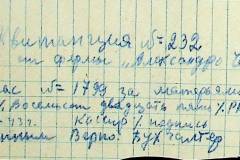 Квитанция № 232
от фирмы „Александро
ас № 1799 за материал
Восемьсот двадцать пять
43 г. Кассир подпись
Верно: Бухгалтер